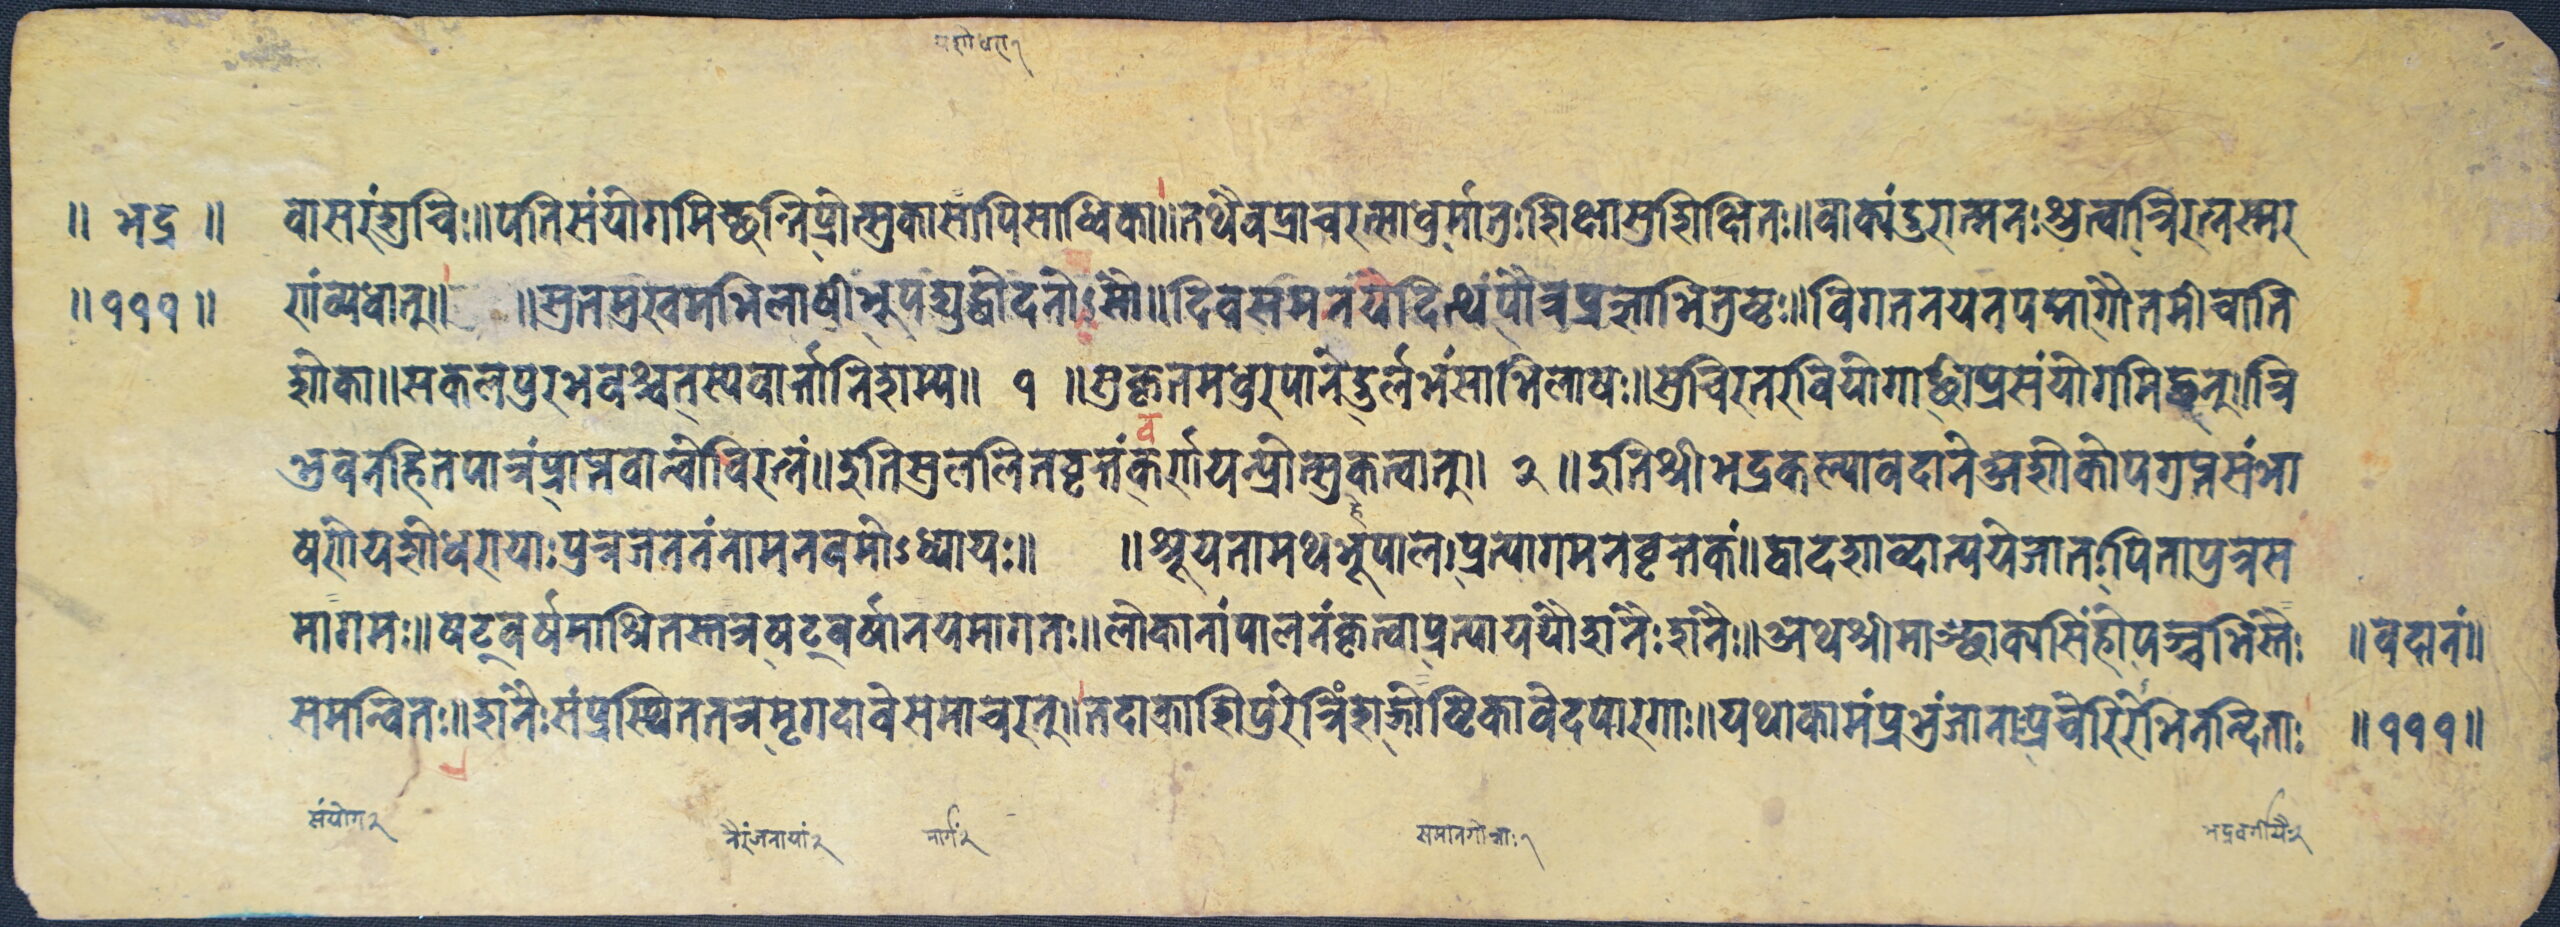 यशोधरा १
॥ भद्र ॥ वासरंशुचिः॥पतिसंयोगमिच्छन्तिप्रोत्सुकासापिसाध्विका॥तथैवप्राचरत्साधुर्मातुःशिक्षासुशिक्षितः॥वाक्यंदुरात्मनःश्रुत्वात्रिरत्नस्मर
॥ १११ ॥ णंव्यधात्॥ ॥सुतमुखमभिलाषीभूपशुद्धोदनोऽसौ॥दिवसमनयदित्थंपौत्रप्रज्ञाभितुष्टः॥विगतनयनपद्मागौतमीचाति
शोका॥सकलपुरभवश्चतस्यवार्त्तानिशम्य॥ १ ॥शुकृतमधुरपानंदुर्लभंसाभिलाषः॥सुचिरतरवियोगाछीप्रसंयोगमिच्छन्॥त्रि
भुवनहितपात्रंप्राप्तेवान्बोधिरत्नं॥इतिसुललितवृत्तंकर्णयन्प्रोत्सुकत्वात्॥ २ ॥इतिश्रीभद्रकल्पावदानेअशोकोपगुप्तसंभा
व
षणेयशोधरायाःपुत्रजननंनामनवमोऽध्यायः॥ ॥श्रूयतामथभूपालप्रत्यागमनवृत्तकं॥द्वादशाब्दात्ययेजातःपितापुत्रस
हे
मागमः॥षट्वर्षमाश्रितस्तत्रषट्वर्षानयमागतः॥लोकानांपालनंकृत्वाप्रत्याययौशनैःशनैः॥अथश्रीमाञ्छाक्यसिंहोपञ्चभिस्तैः ॥वदानं॥
समन्वितः॥शनैःसंप्रस्थिततत्रमृगदावेसमाचरत्॥तदाकाशिपुरेत्रिंशज्गोष्टिकावेदपारगाः॥यथाकामंप्रभुंजानाप्रचेरिरेभिनन्दिताः ॥१११॥
संयोग २ नैरंजनायां २ मार्गं २ समानगोत्राः १ भद्रवर्गीयैः २